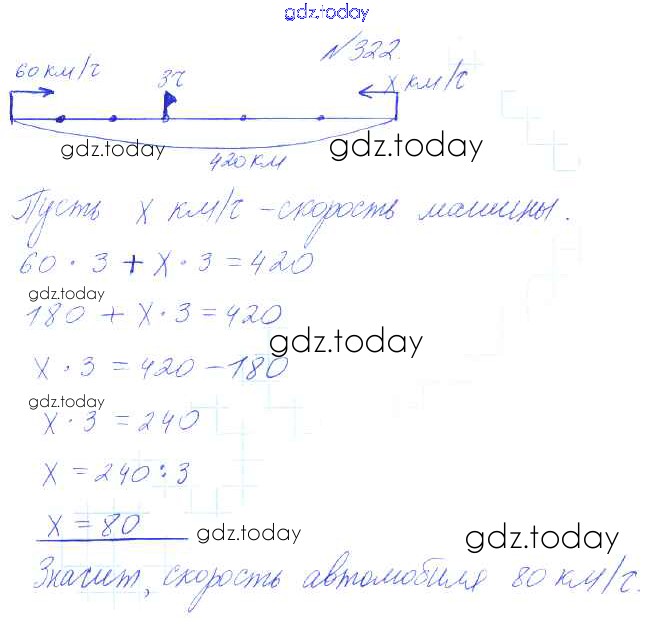 gdz.today
№322.
60 км/ч 3ч x км/ч
gdz.today gdz.today
420 км
Пусть x км/ч - скорость машины.
60 · 3 + x · 3 = 420
gdz.today
180 + x · 3 = 420
gdz.today
x · 3 = 420 - 180
gdz.today
x · 3 = 240
x = 240 : 3
x = 80
gdz.today gdz.today
Значит, скорость автомобиля 80 км/ч.